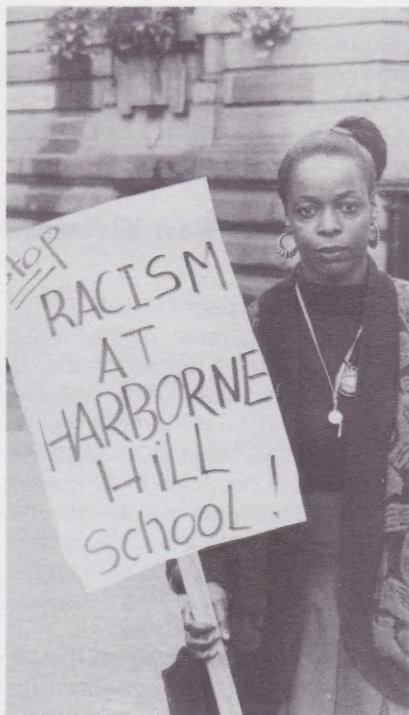 Stop
RACISM
AT
HARBORNE
HiLL
School!